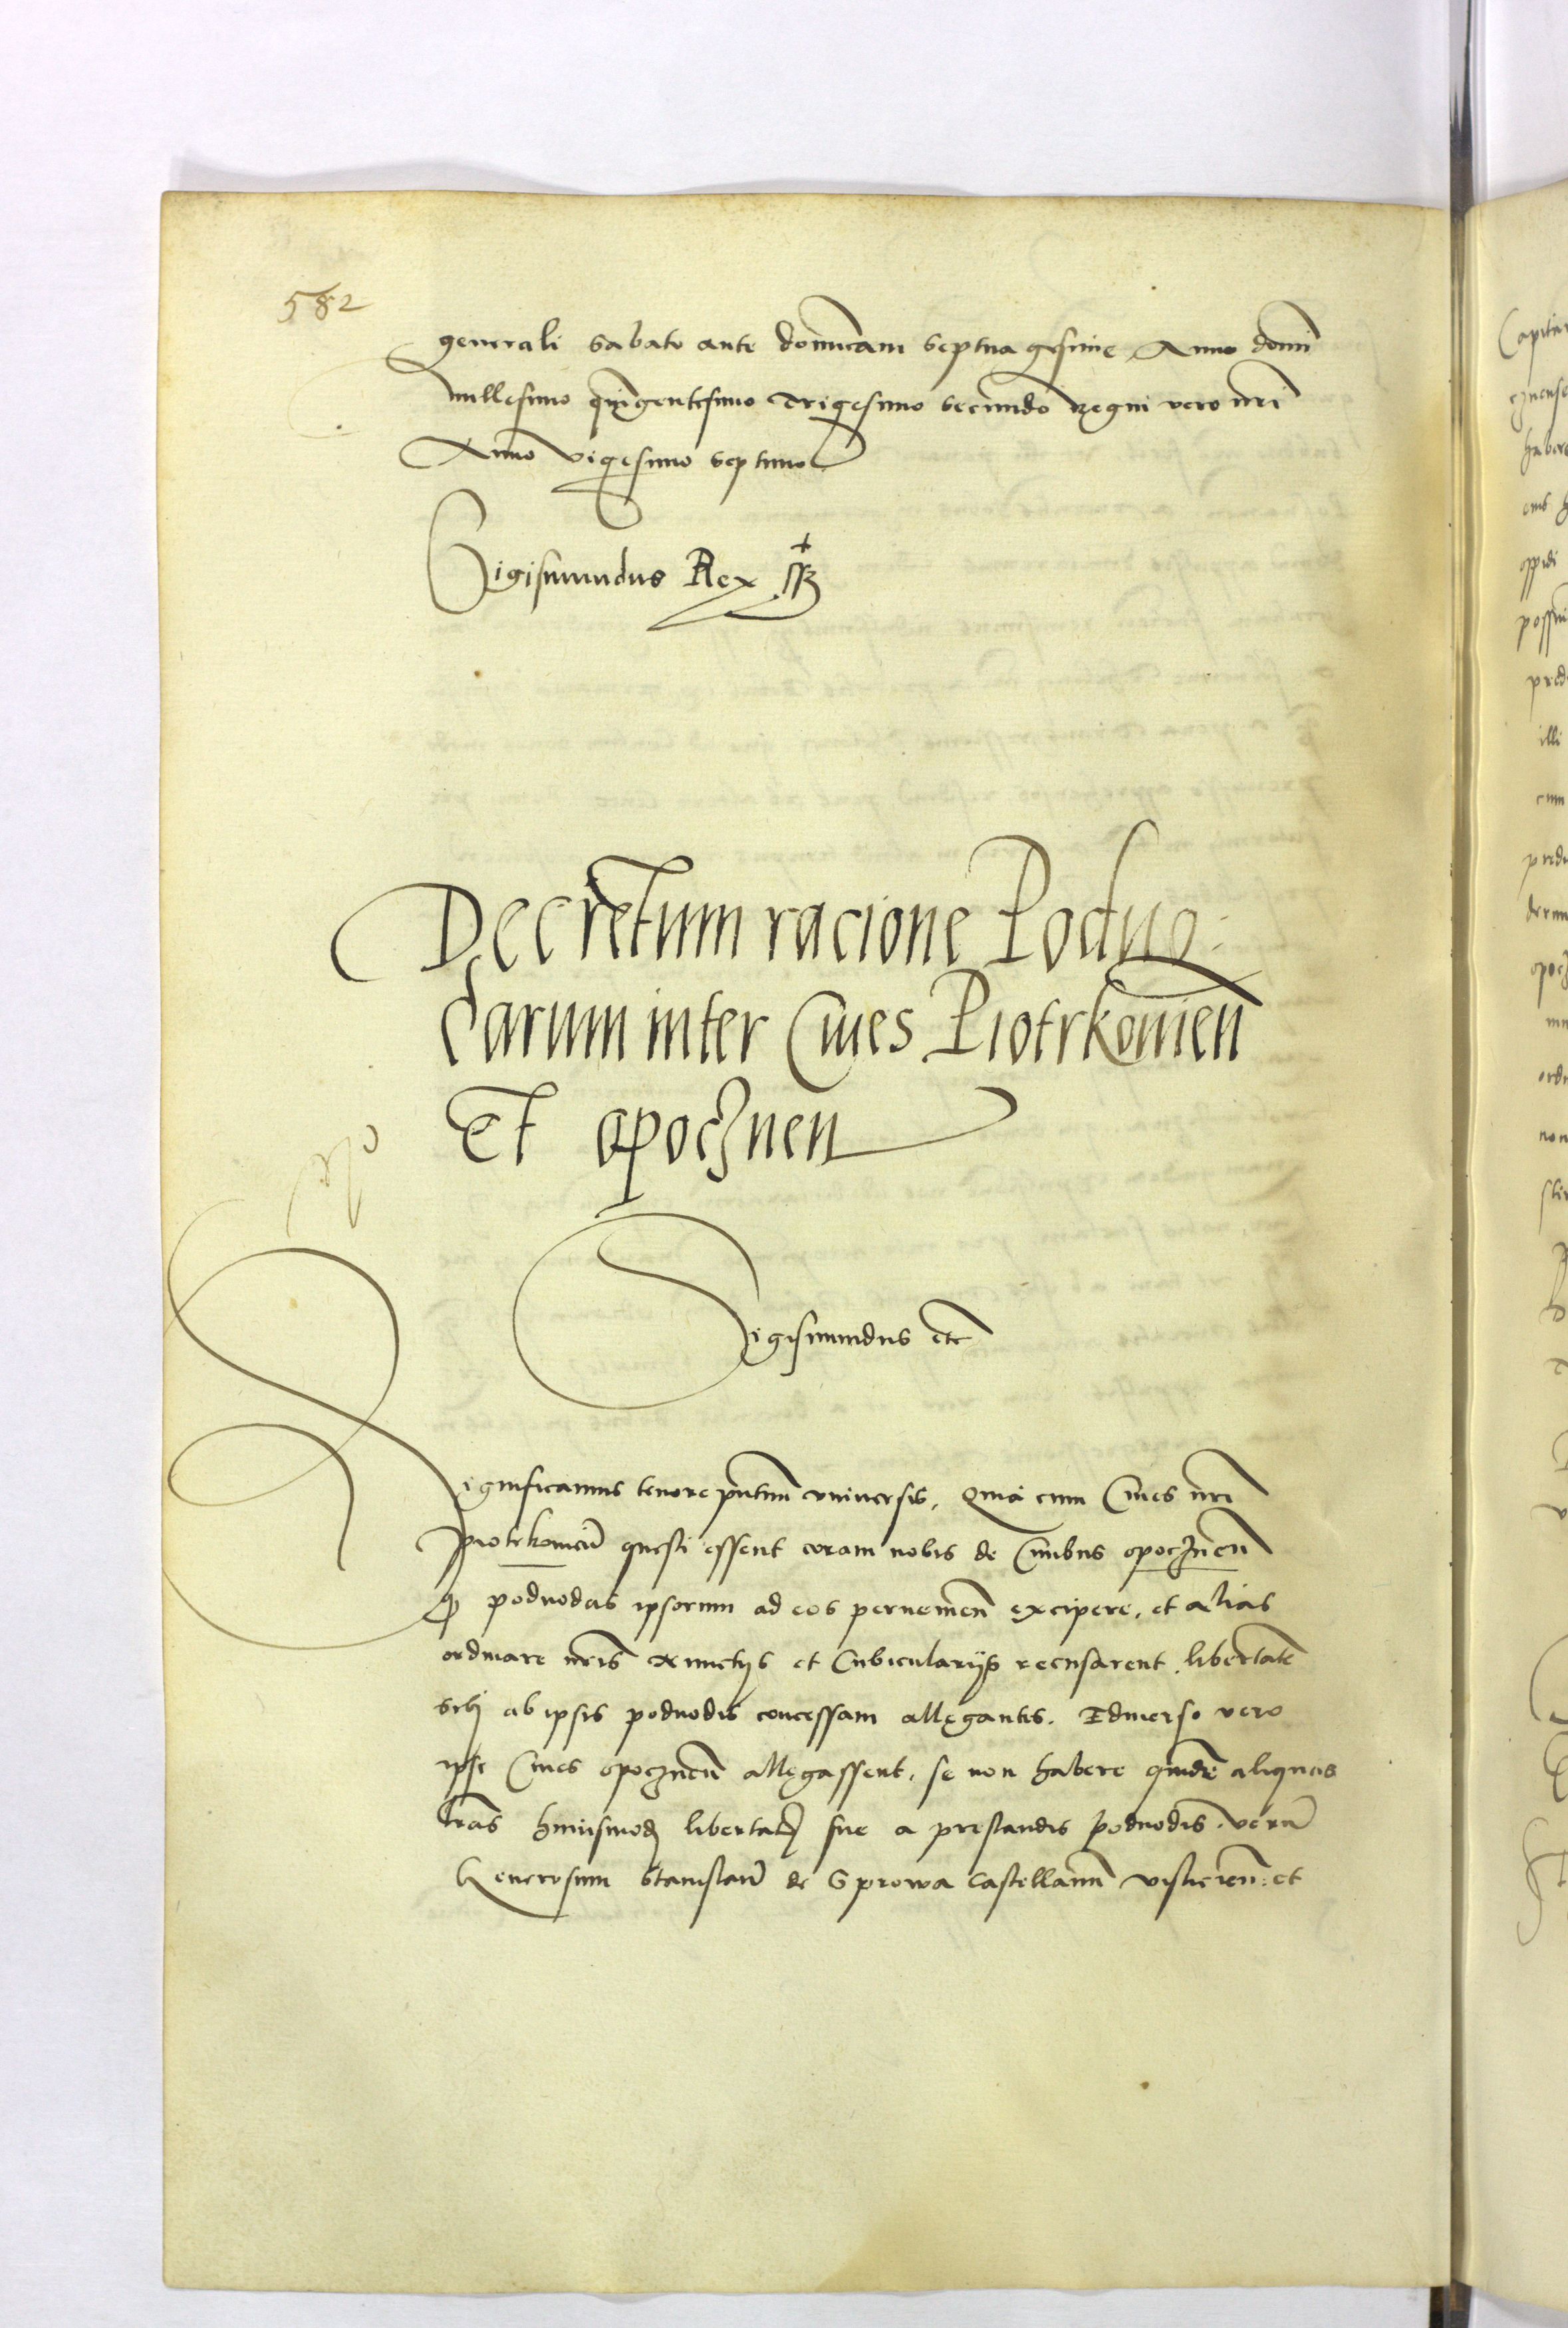 582
generali Sabato ante dominicam Septuagesime Anno domi
millesimo quingentesimo Trigesimo Secundo Regni vero nri
Anno Vigesimo Septimo
Sigismundus Rex sst
Decretum racione Poduo
darum inter Ciues Piotrkouien
Et opocznen
Sigismundus etc
Significamus tenore pntium vniuersis, Quia cum Ciues nri
Piotrkouien questi essent coram nobis de Ciuibus opocznen
q poduodas ipsorum ad eos peruenien excipere, et alias
ordinare nris et Cubicularijs recusarent, libertate
sibi ab ipsis poduodis concessam allegantes. Eduerso vero
ipsi Ciues opocznen allegassent, se non habere quide aliquas
lras huiusmodi libertatis sue a prestandis poduodis, veru
Generosum Stanislau de Sprowa Castellanum vislicien: et